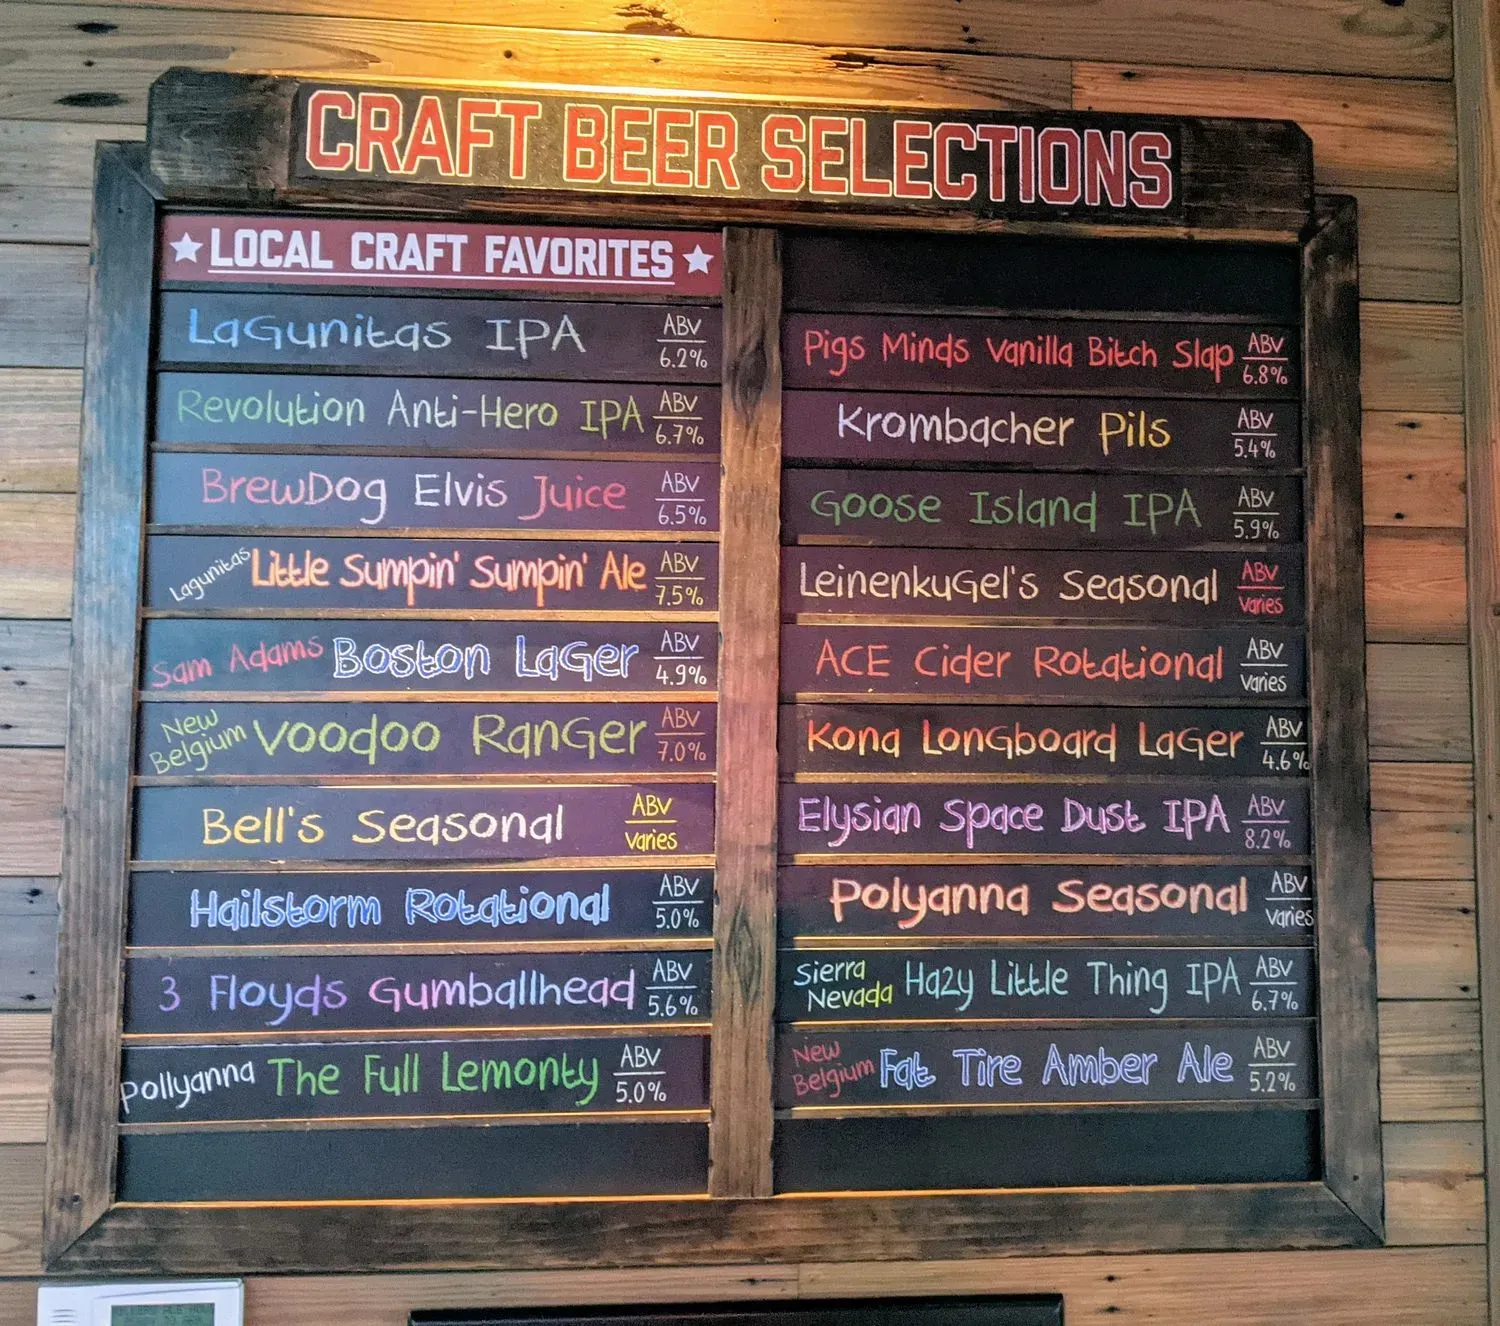 CRAFT BEER SELECTIONS
★ LOCAL CRAFT FAVORITES ★
LaGunitas IPA ABV 6.2%
Revolution Anti-Hero IPA ABV 6.7%
BrewDog Elvis Juice ABV 6.5%
Lagunitas Little Sumpin' Sumpin' Ale ABV 7.5%
Sam Adams Boston LaGer ABV 4.9%
New Belgium Voodoo RanGer ABV 7.0%
Bell's Seasonal ABV Varies
Hailstorm Rotational ABV 5.0%
3 Floyds Gumballhead ABV 5.6%
Pollyanna The Full Lemonty ABV 5.0%
Pigs Minds Vanilla Bitch Slap ABV 6.8%
Krombacher Pils ABV 5.4%
Goose Island IPA ABV 5.9%
LeinenkuGel's Seasonal ABV Varies
ACE Cider Rotational ABV Varies
Kona LonGboard LaGer ABV 4.6%
Elysian Space Dust IPA ABV 8.2%
Polyanna Seasonal ABV Varies
Sierra Nevada Hazy Little Thing IPA ABV 6.7%
New Belgium Fat Tire Amber Ale ABV 5.2%